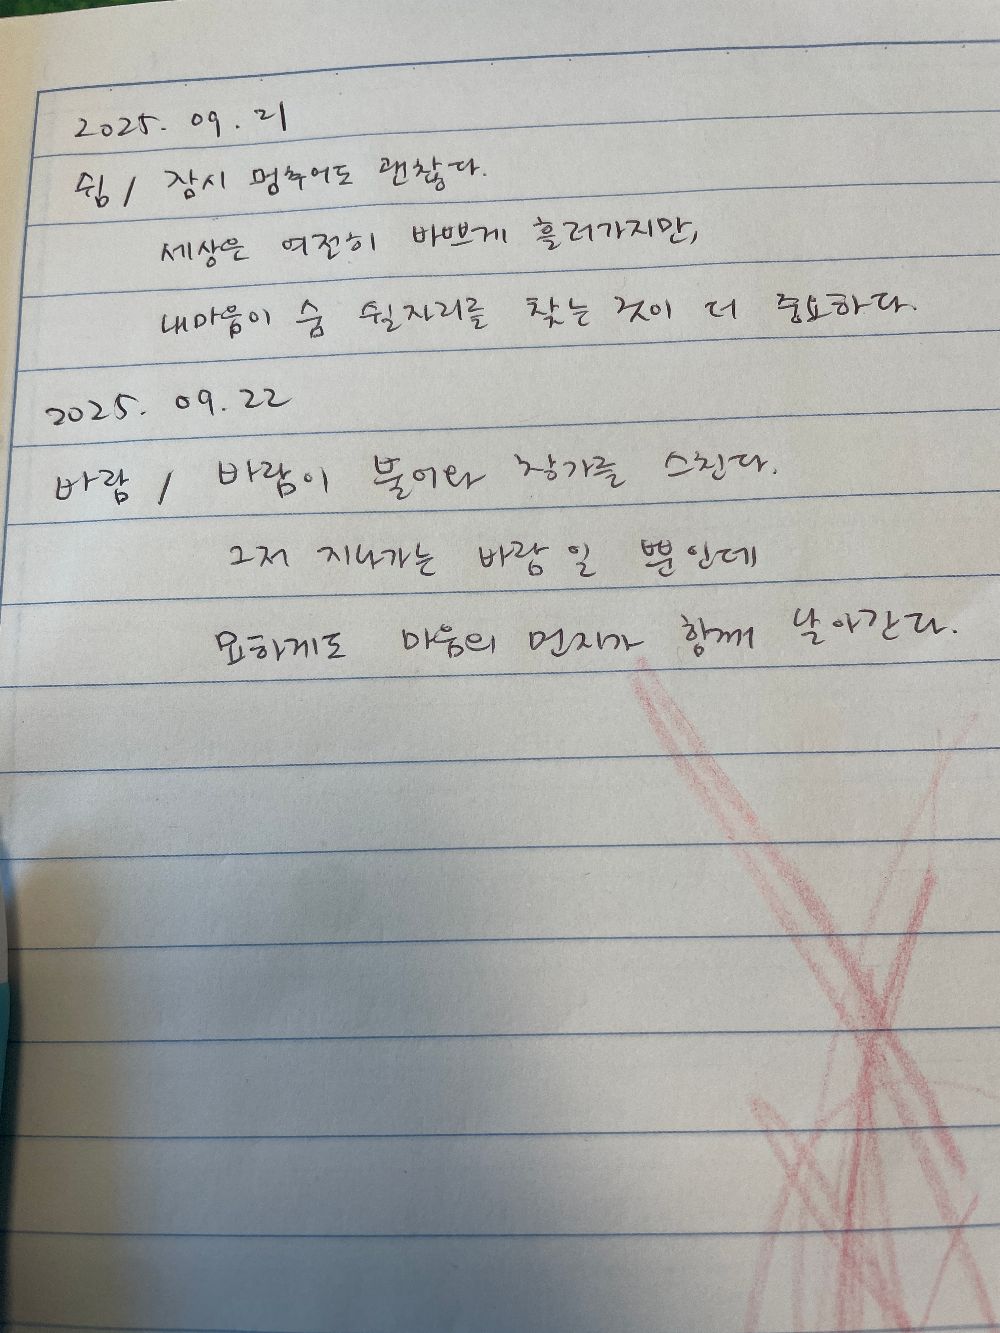 2025. 09. 21
쉼 / 잠시 멈추어도 괜찮다.
세상은 여전히 바쁘게 흘러가지만,
내마음이 숨 쉴자리를 찾는 것이 더 중요하다.
2025. 09. 22
바람 / 바람이 불어와 창가를 스친다.
그저 지나가는 바람일 뿐인데
묘하게도 마음의 먼지가 함께 날아간다.